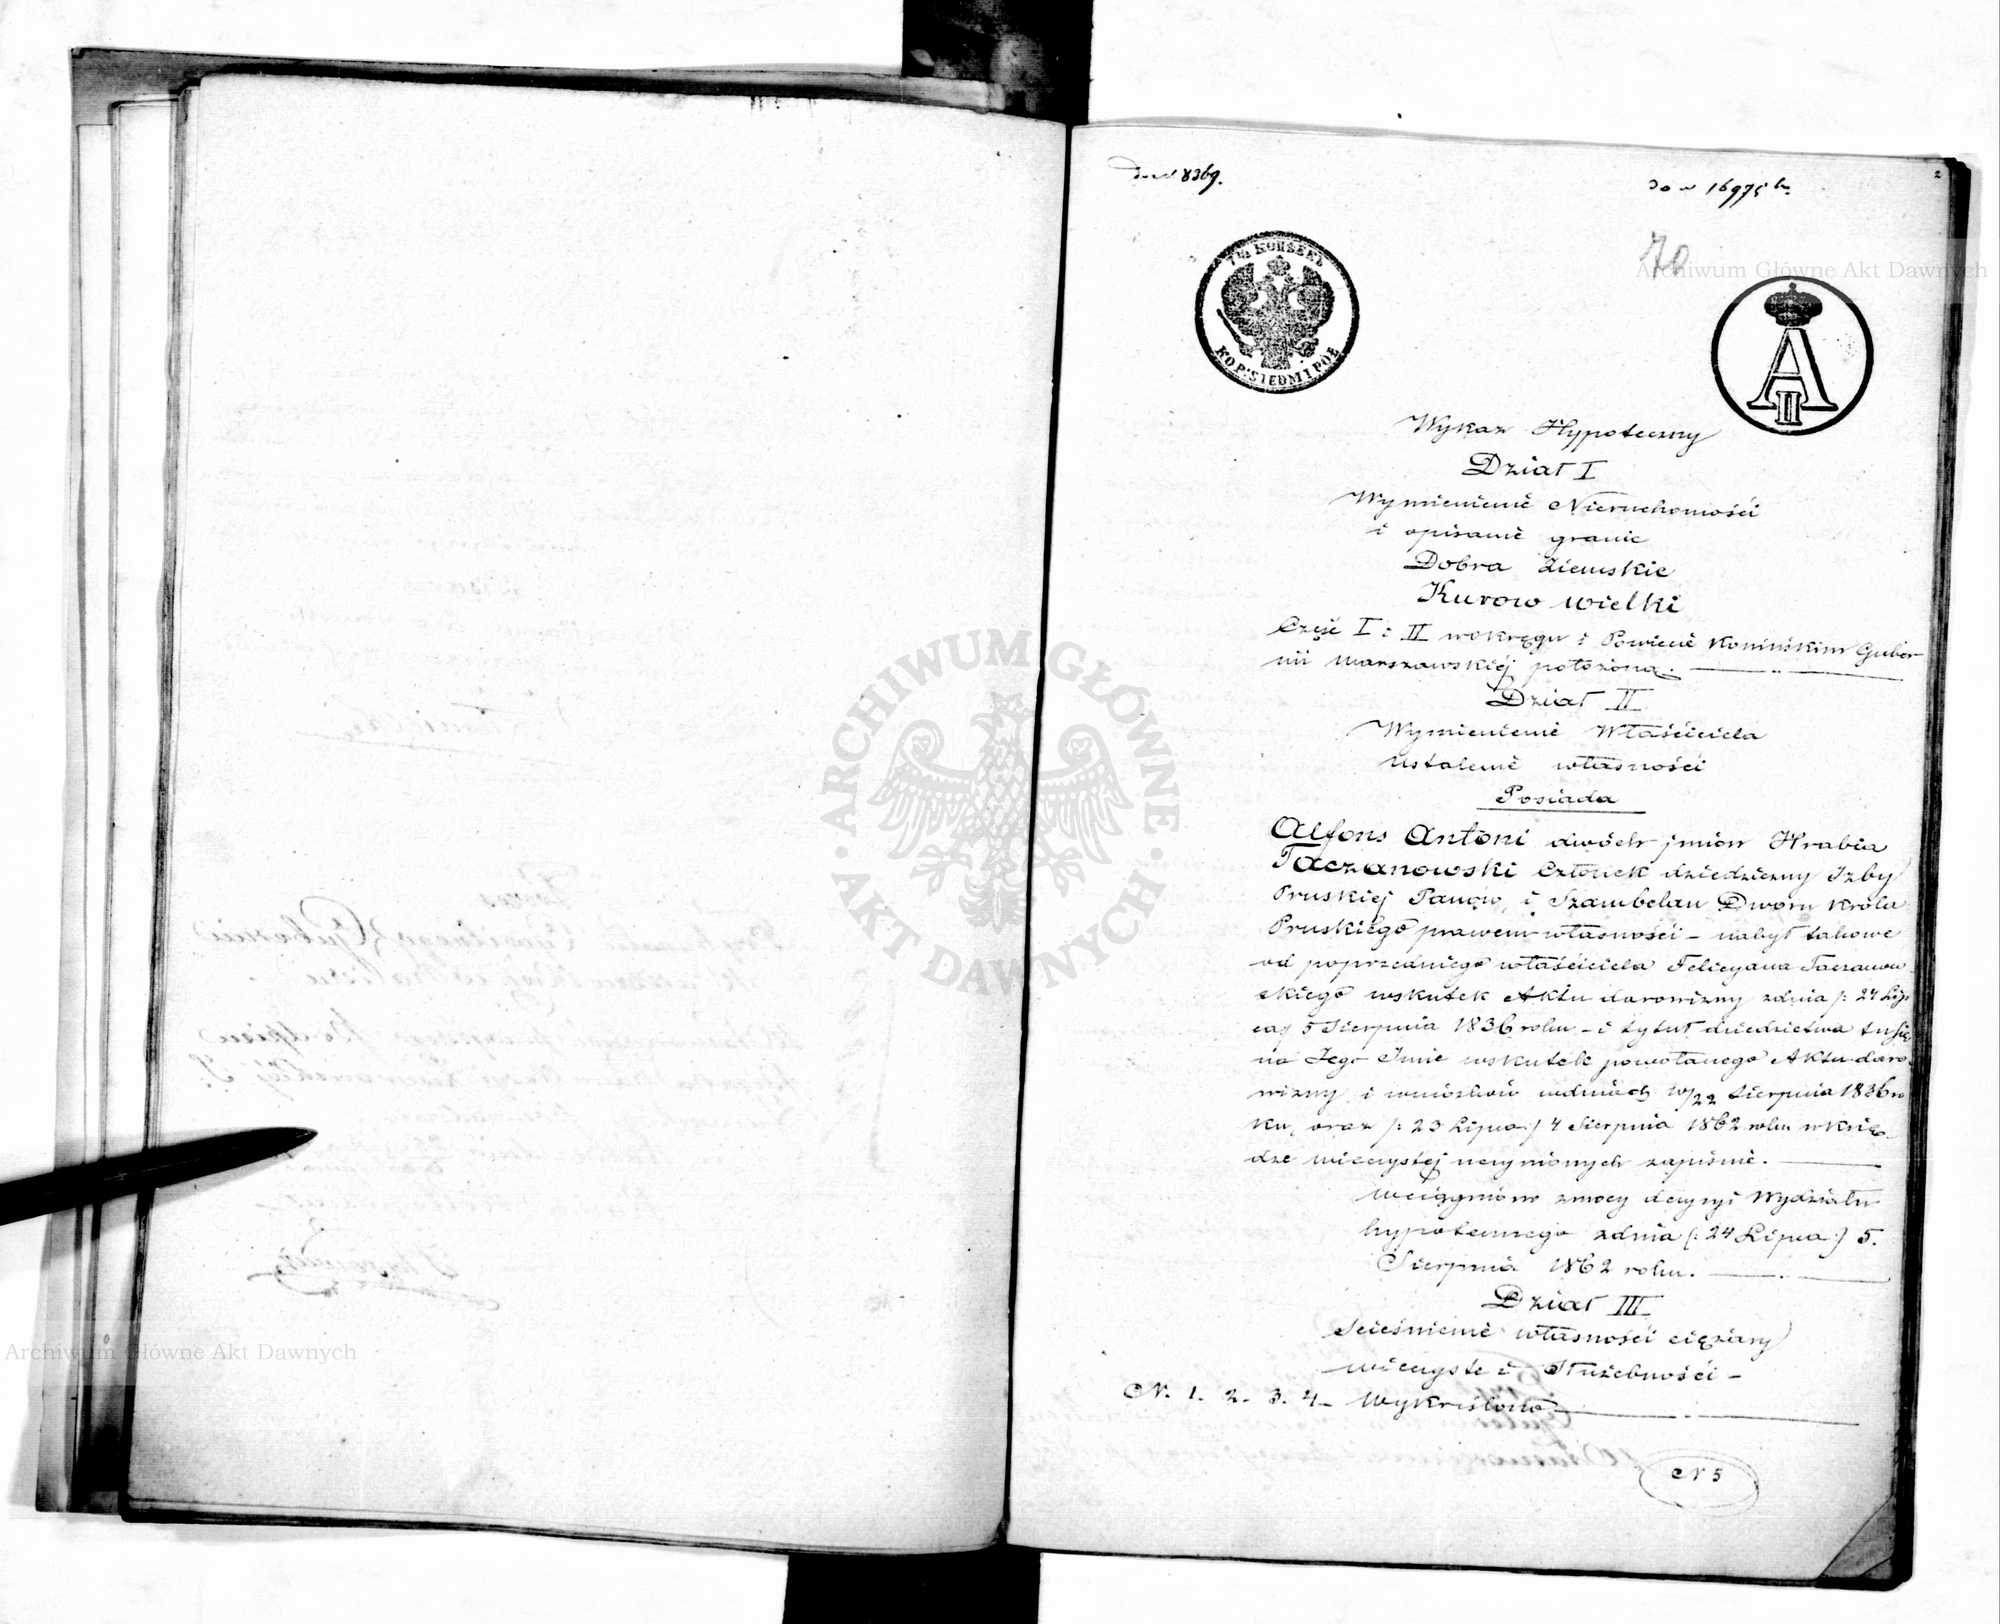 8369.
16975
2
70
7½ КОПѢЕКЪ
KOP. SIEDM I PÓŁ
A II
Wykaz Hypoteczny
Dział I
Wymienienie Nieruchomości
i opisanie granic
Dobra Ziemskie
Kurow wielki
Część I i II w okręgu i Powiecie Konińskim Guber
nii Warszawskiéj położona.
Dział II
Wymienienie Właściciela
ustalenie własności
Posiada
Alfons Antoni dwóch imion Hrabia
Taczanowski Członek dziedziczny Izby
Pruskiéj Panów, i Szambelan Dworu Króla
Pruskiego prawem własności – nabył takowe
od poprzedniego właściciela Felicyana Taczanow
skiego wskutek Aktu darowizny z dnia /: 24 Lip
ca :/ 5 Sierpnia 1836 roku – i tytuł dziedzictwa tu się
na Jego Imie wskutek powołanego Aktu daro
wizny i wniosków w dniach 10/22 Sierpnia 1836 ro
ku, oraz /: 23 Lipca :/ 4 Sierpnia 1862 roku w księ
dze wieczystéj uczynionych zapisuie.
wciągnięto z mocy decyzyi Wydziału
hypotecznego z dnia (: 24 Lipca :) 5.
Sierpnia 1862 roku.
Dział III
Scieśnienie własności ciężary
wieczyste i Służebności –
N. 1. 2. 3. 4 – Wykréślono
N 5
Archiwum Główne Akt Dawnych
ARCHIWUM GŁÓWNE · AKT DAWNYCH ·
Archiwum Główne Akt Dawnych